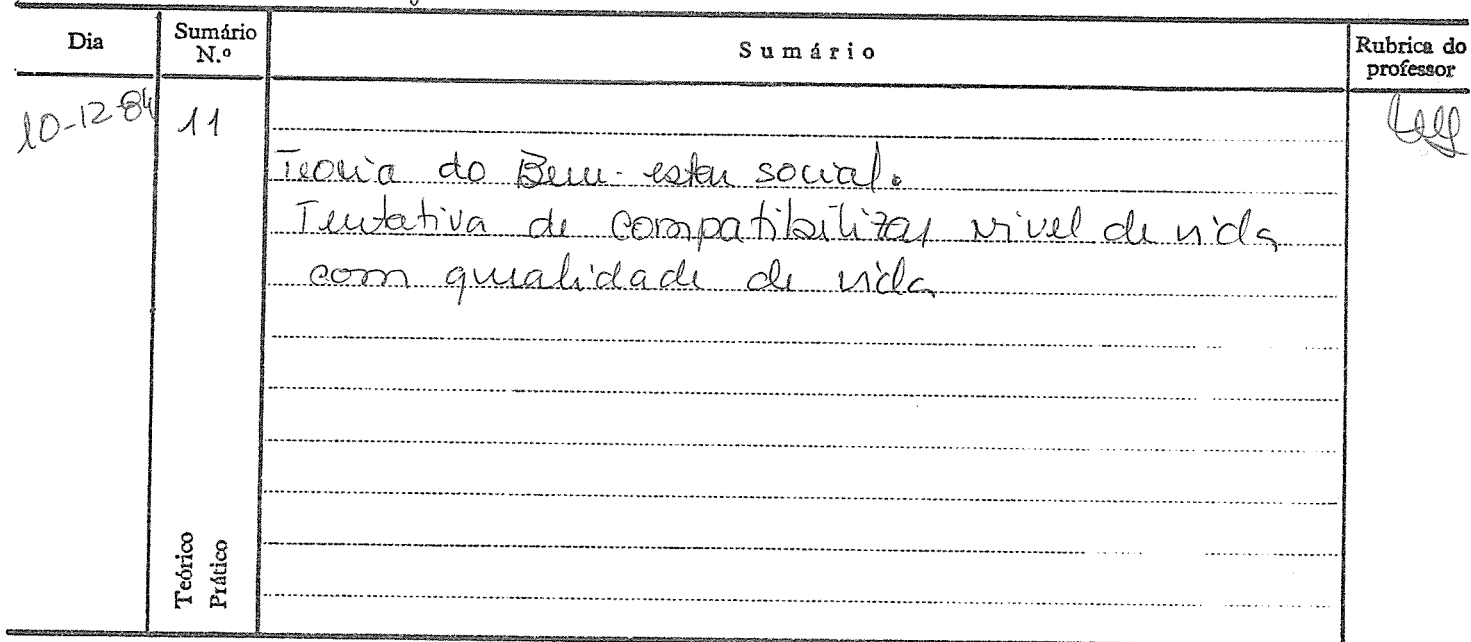 Dia Sumário N.º Sumário Rubrica do professor
10-12-84 11
Teoria do Bem-estar social.
Tentativa de compatibilizar nivel de vida
com qualidade de vida
Teórico
Prático